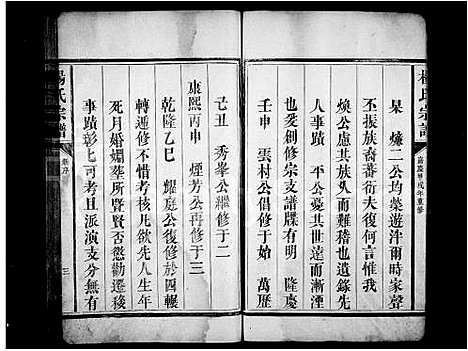 楊氏宗譜
嘉慶甲戌年重修
杲 燫二公均菜遊泮爾時家聲
丕振族裔蕃衍夫復何言惟我
煥公慮其太而難稽也遺錄先
人事蹟 平公憂其世遠而漸湮
也爰創修宗支譜牒有明 隆慶
壬申 雲村公倡修于始 萬歷
己丑 秀峯公繼修于二
康熙丙申 煙芳公再修于三
乾隆乙巳 耀庭公復修於四輾
轉遞修不惜考核凡欲先人生年
死月婚姻塋所暨賢否懲勸遷移
事蹟彰匕可考且派演支分無有
楊氏宗譜
新序
三